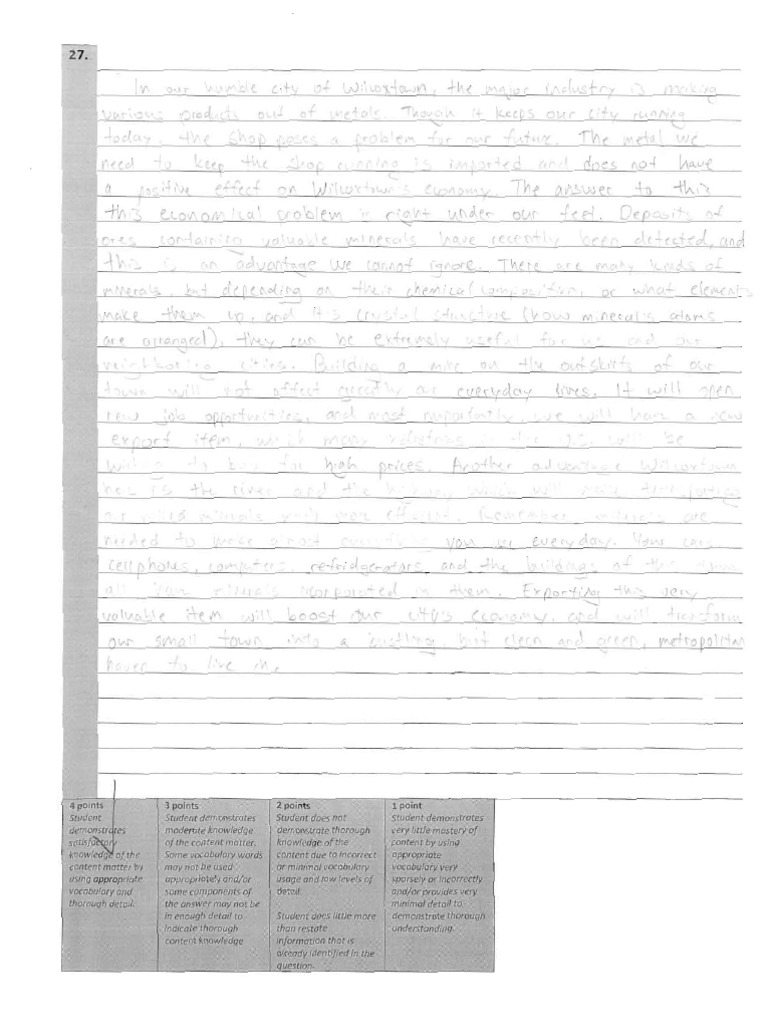 27.
In our humble city of Wilcoxtown, the major industry is making
various products out of metals. Though it keeps our city running
today, the shop poses a problem for our future. The metal we
need to keep the shop running is imported and does not have
a positive effect on Wilcoxtown's economy. The answer to this
this economical problem is right under our feet. Deposits of
ores containing valuable minerals have recently been detected, and
this is an advantage we cannot ignore. There are many kinds of
minerals, but depending on their chemical composition, or what elements
make them up, and it's crystal structure (how mineral's atoms
are arranged), they can be extremely useful for us and our
neighboring cities. Building a mine on the outskirts of our
town will not affect directly our everyday lives. It will open
new job opportunities, and most importantly, we will have a new
export item, which many industries in the U.S. will be
willing to buy for high prices. Another advantage Wilcoxtown
has is the river and the highway which will make transporting
our mined minerals much more efficient. Remember, minerals are
needed to make almost everything you use everyday. Your cars,
cellphones, computers, refridgerators, and the buildings of this town
all have minerals incorporated in them. Exporting this very
valuable item will boost our city's economy, and will transform
our small town into a bustling, but clean and green, metropolitan
haven to live in.
4 points
Student
demonstrates
satisfactory
knowledge of the
content matter by
using appropriate
vocabulary and
thorough detail.
3 points
Student demonstrates
moderate knowledge
of the content matter.
Some vocabulary words
may not be used
appropriately and/or
some components of
the answer may not be
in enough detail to
indicate thorough
content knowledge
2 points
Student does not
demonstrate thorough
knowledge of the
content due to incorrect
or minimal vocabulary
usage and low levels of
detail.
Student does little more
than restate
information that is
already identified in the
question.
1 point
Student demonstrates
very little mastery of
content by using
appropriate
vocabulary very
sparsely or incorrectly
and/or provides very
minimal detail to
demonstrate thorough
understanding.